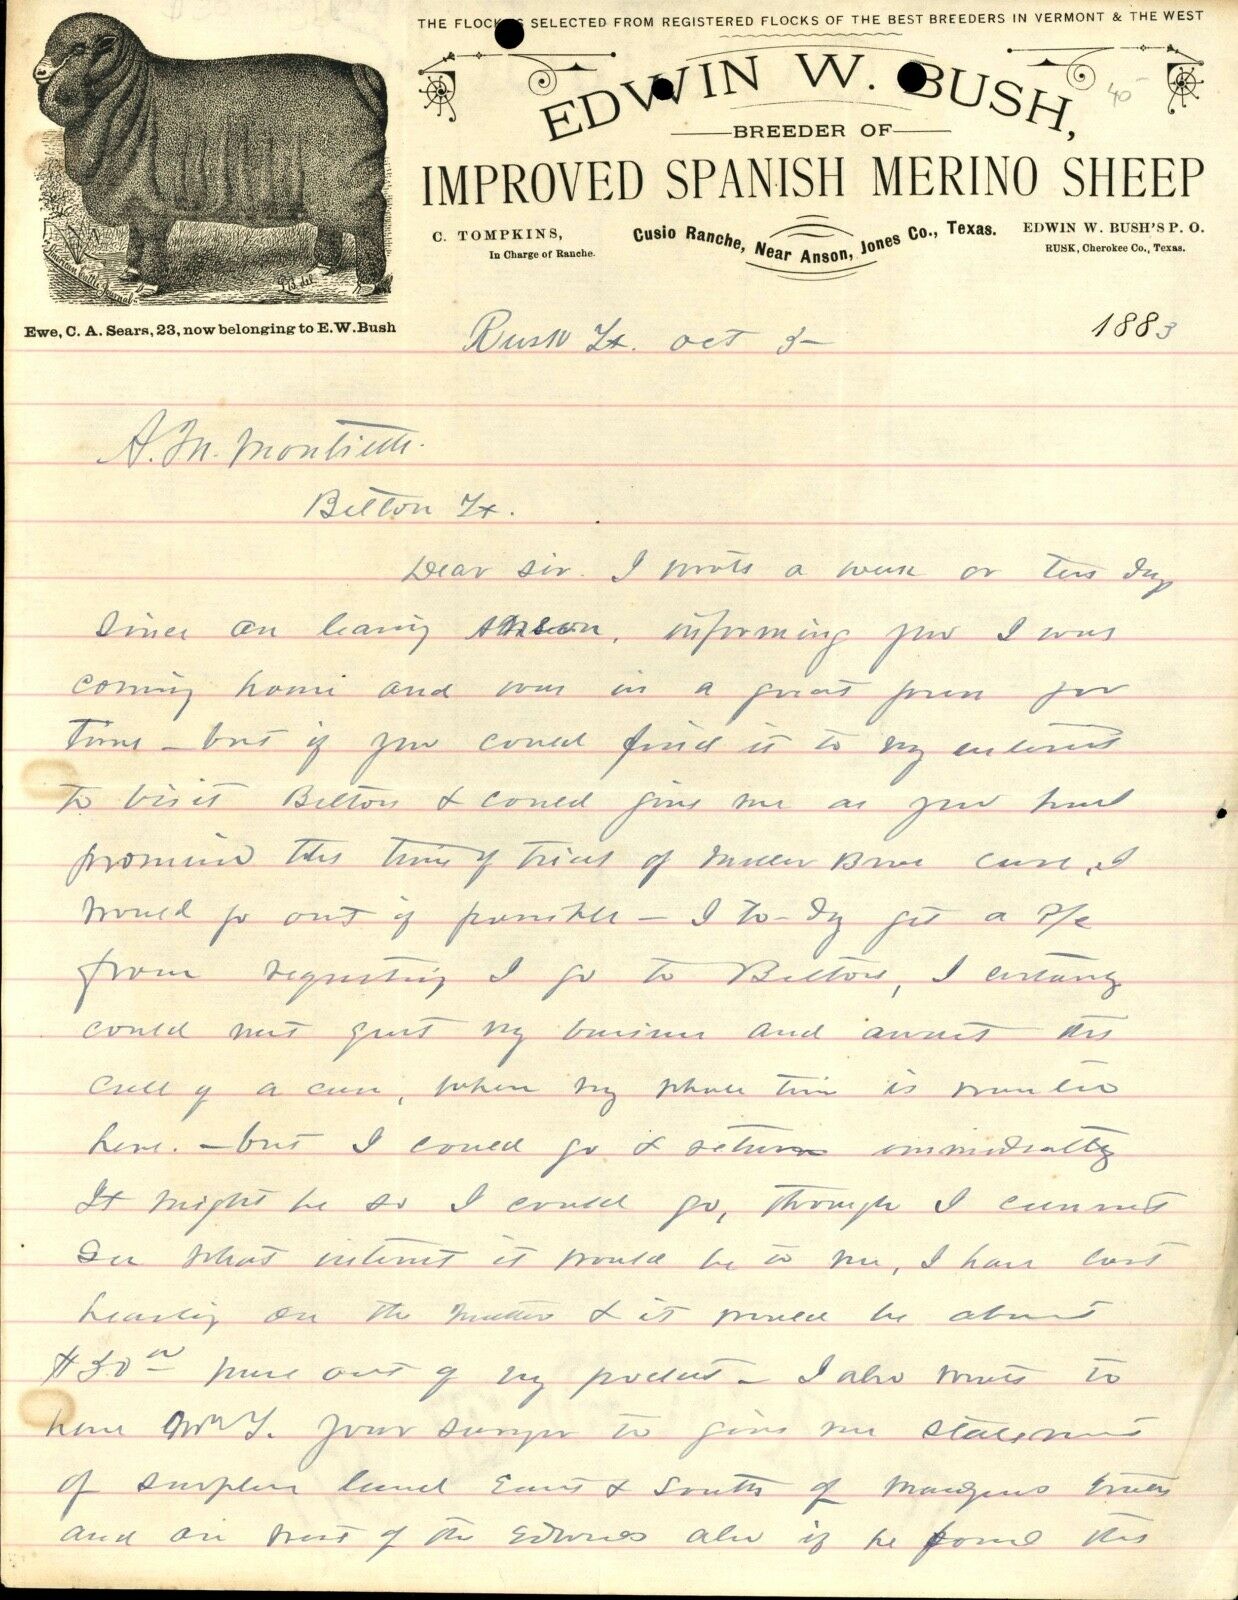 THE FLOCK IS SELECTED FROM REGISTERED FLOCKS OF THE BEST BREEDERS IN VERMONT & THE WEST
EDWIN W. BUSH,
BREEDER OF
IMPROVED SPANISH MERINO SHEEP
C. TOMPKINS,
In Charge of Ranche.
Cusio Ranche, Near Anson, Jones Co., Texas.
EDWIN W. BUSH'S P. O.
RUSK, Cherokee Co., Texas.
American Cattle Journal
Ewe, C. A. Sears, 23, now belonging to E. W. Bush
40
Rusk Tx. Oct 3- 1883
A. M. Montieth.
Belton Tx.
Dear Sir. I wrote a week or ten dys
since on leaving Anson, informing you I was
coming home and was in a great press for
time - but if you could find it to my interest
to visit Belton & could give me as you had
promised the time of trial of case, I
would go out if possible - I to-dy get a P/c
from requesting I go to Belton, I certainly
could not quit my business and await the
call of a case, when my whole time is wanted
here. - but I could go & return immediatly
It might be so I could go, though I cannot
see what interest it would be to me, I have lost
heavily on the matter & it would be about
$30 more out of my pocket - I also wrote to
have Wm T. your survyor to give me statement
of surplus land East & South of
and on west of the Edwards also if he found the